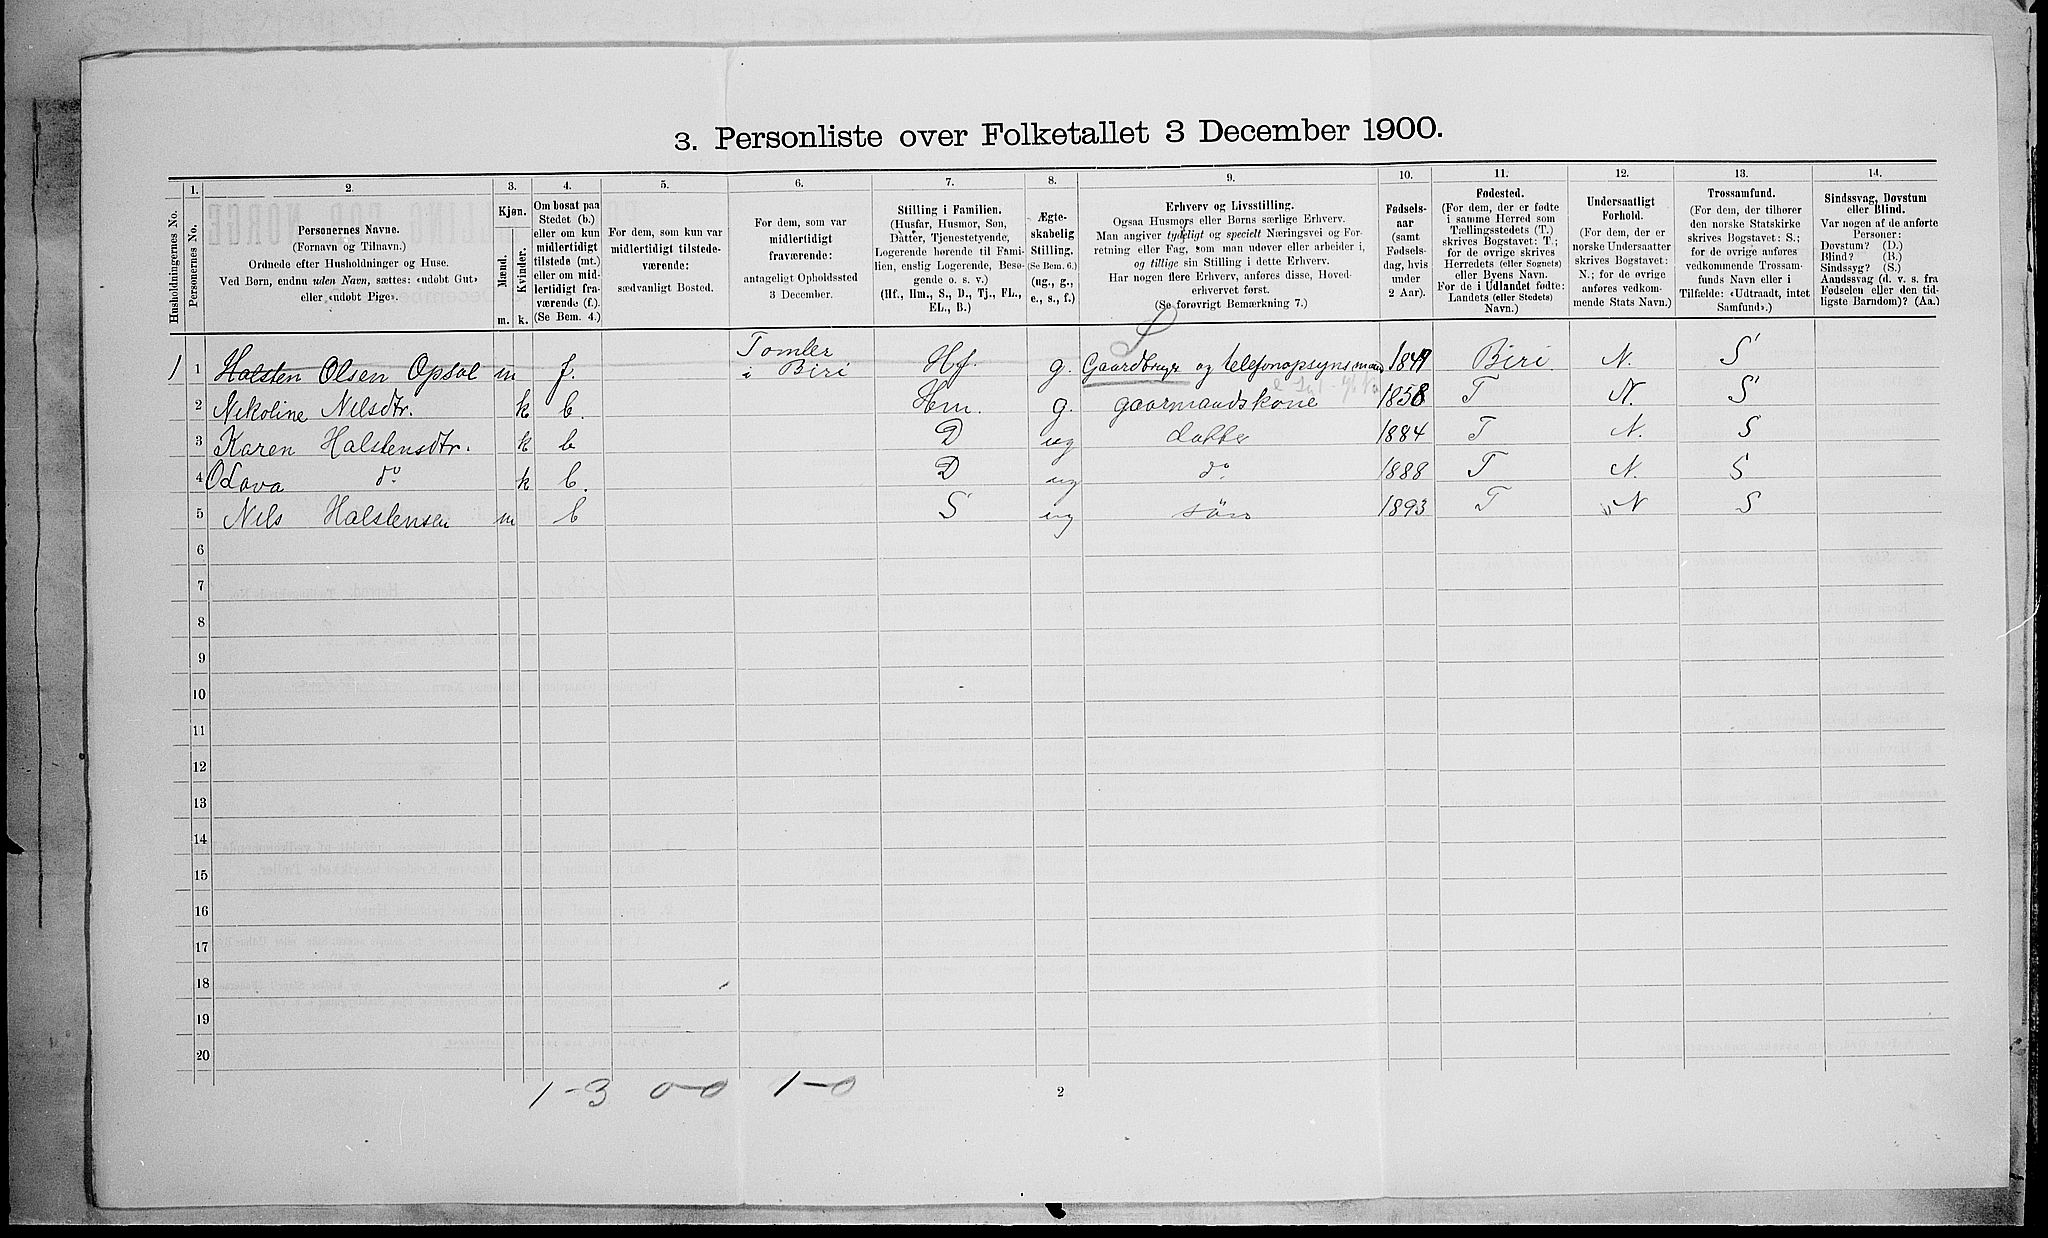 3. Personliste over Folketallet 3 December 1900.
Husholdningernes No.
1.
Personernes No.
2.
Personernes Navne.
(Fornavn og Tilnavn.)
Ordnede efter Husholdninger og Huse.
Ved Børn, endnu uden Navn, sættes: «udøbt Gut»
eller «udøbt Pige».
3.
Kjøn.
Mænd.
Kvinder.
m.
k.
4.
Om bosat paa
Stedet (b.)
eller om kun
midlertidigt
tilstede (mt.)
eller om mid-
lertidigt fra-
værende (f.).
(Se Bem. 4.)
5.
For dem, som kun var
midlertidigt tilstede-
værende:
sædvanligt Bosted.
6.
For dem, som var
midlertidigt
fraværende:
antageligt Opholdssted
3 December.
7.
Stilling i Familien.
(Husfar, Husmor, Søn,
Datter, Tjenestetyende,
Logerende hørende til Fami-
lien, enslig Logerende, Besø-
gende o. s. v.)
(Hf., Hm., S., D., Tj., FL.,
EL., B.)
8.
Ægte-
skabelig
Stilling.
(Se Bem. 6.)
(ug., g.,
e., s., f.)
9.
Erhverv og Livsstilling.
Ogsaa Husmors eller Børns særlige Erhverv.
Man angiver tydeligt og specielt Næringsvei og For-
retning eller Fag, som man udøver eller arbeider i,
og tillige sin Stilling i dette Erhverv.
Har nogen flere Erhverv, anføres disse, Hoved-
erhvervet først.
(Se forøvrigt Bemærkning 7.)
10.
Fødsels-
aar
(samt
Fødsels-
dag, hvis
under
2 Aar).
11.
Fødested.
(For dem, der er fødte
i samme Herred som
Tællingsstedets (T.)
skrives Bogstavet: T.;
for de øvrige skrives
Herredets (eller Sognets)
eller Byens Navn.
For de i Udlandet fødte:
Landets (eller Stedets)
Navn.)
12.
Undersaatligt
Forhold.
(For dem, der er
norske Undersaatter
skrives Bogstavet:
N.; for de øvrige
anføres vedkom-
mende Stats Navn.)
13.
Trossamfund.
(For dem, der tilhører
den norske Statskirke
skrives Bogstavet: S.;
for de øvrige anføres
vedkommende Trossam-
funds Navn eller i
Tilfælde: «Udtraadt, intet
Samfund».)
14.
Sindssvag, Døvstum
eller Blind.
Var nogen af de anførte
Personer:
Døvstum? (D.)
Blind? (B.)
Sindssyg? (S.)
Aandssvag (d. v. s. fra
Fødselen eller den tid-
ligste Barndom)? (Aa.)
1 1 Halsten Olsen Opsal m f. Tomler i Biri Hf. g. Gaardbruger og telefonopsynsmand 1847 Biri N. S
2 Nikoline Nilsdtr. k b. Hm. g. gaarmandskone 1858 T N. S
3 Karen Halstensdtr. k b D ug datter 1884 T N. S
4 Olava do k b. D ug do 1888 T N. S
5 Nils Halstensen m b S ug søn 1893 T N S
6
7
8
9
10
11
12
13
14
15
16
17
18
19
20
1-3 0-0 1-0
2